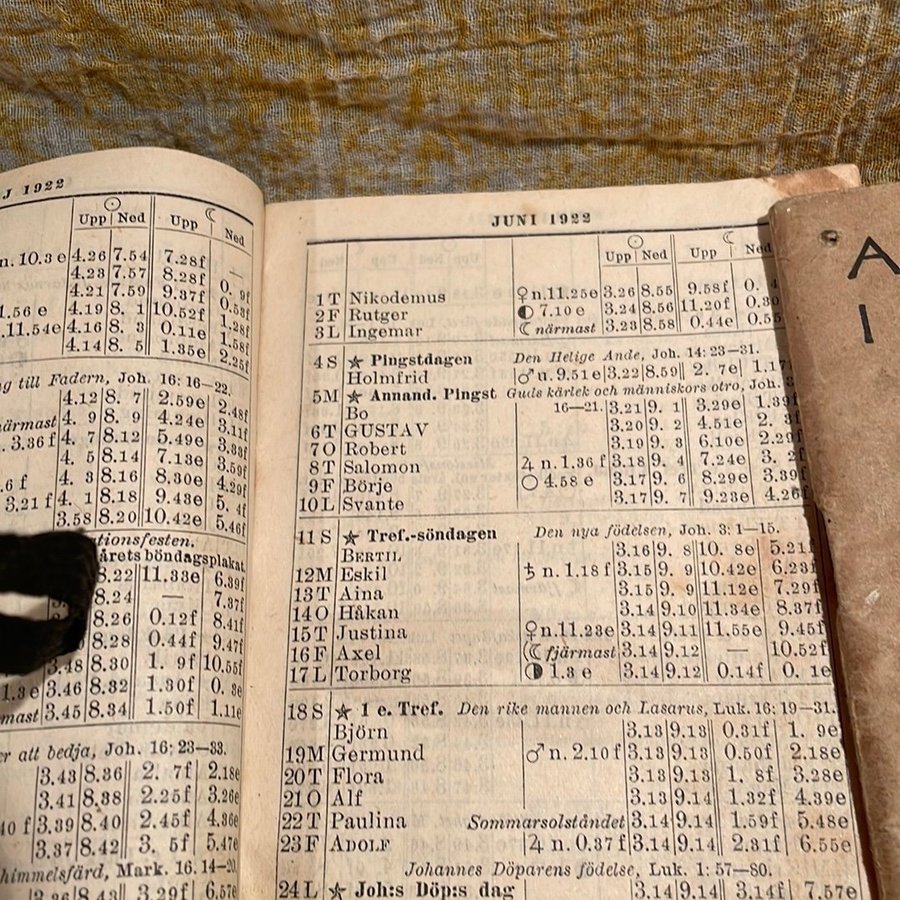 J 1922
☉ ☾
Upp Ned Upp Ned
n. 10.3 e 4.26 7.54 7.28f —
4.23 7.57 8.28f 0. 9f
4.21 7.59 9.37f 0.53f
1.56 e 4.19 8. 1 10.52f 1.28f
.11.54e 4.16 8. 3 0.11e 1.58f
4.14 8. 5 1.35e 2.25f
g till Fadern, Joh. 16: 16—22.
4.12 8. 7 2.59e 2.48f
närmast 4. 9 8. 9 4.24e 3.11f
. 3.36 f 4. 7 8.12 5.49e 3.33f
4. 5 8.14 7.13e 3.59f
.6 f 4. 3 8.16 8.30e 4.29f
3.21 f 4. 1 8.18 9.43e 5. 4f
3.58 8.20 10.42e 5.46f
ationsfesten.
årets böndagsplakat.
8.22 11.33e 6.39f
8.24 — 7.37f
8.26 0.12f 8.41f
8.28 0.44f 9.47f
3.48 8.30 1. 9f 10.55f
1.3 e 3.46 8.32 1.30f 0. 3e
mast 3.45 8.34 1.50f 1.11e
er att bedja, Joh. 16: 23—33.
3.43 8.36 2. 7f 2.18e
3.41 8.38 2.25f 3.26e
40 f 3.39 8.40 2.45f 4.36e
3.37 8.42 3. 5f 5.47e
himmelsfärd, Mark. 16. 14—20.
8.43 3.29f 6.57e
JUNI 1922
☉ ☾
Upp Ned Upp Ned
1 T Nikodemus ♀ n. 11.25e 3.26 8.55 9.58f 0.
2 F Rutger ◐ 7.10 e 3.24 8.56 11.20f 0.30
3 L Ingemar ☾ närmast 3.23 8.58 0.44e 0.55
4 S ★ Pingstdagen Den Helige Ande, Joh. 14: 23—31.
Holmfrid ♂ u. 9.51 e 3.22 8.59 2. 7e 1.17
5 M ★ Annand. Pingst Guds kärlek och människors otro, Joh. 3:
Bo 16—21. 3.21 9. 1 3.29e 1.39f
6 T GUSTAV 3.20 9. 2 4.51e 2. 3f
7 O Robert 3.19 9. 3 6.10e 2.29f
8 T Salomon ♃ n. 1.36 f 3.18 9. 4 7.24e 3. 2f
9 F Börje ○ 4.58 e 3.17 9. 6 8.29e 3.39f
10 L Svante 3.17 9. 7 9.23e 4.26f
11 S ★ Tref.-söndagen Den nya födelsen, Joh. 3: 1—15.
BERTIL 3.16 9. 8 10. 8e 5.21f
12 M Eskil ♄ n. 1.18 f 3.15 9. 9 10.42e 6.23f
13 T Aina 3.15 9. 9 11.12e 7.29f
14 O Håkan 3.14 9.10 11.34e 8.37f
15 T Justina ♀ n. 11.23e 3.14 9.11 11.55e 9.45f
16 F Axel ☾ fjärmast 3.14 9.12 — 10.52f
17 L Torborg ◑ 1.3 e 3.14 9.12 0.14f 0. 1e
18 S ★ 1 e. Tref. Den rike mannen och Lasarus, Luk. 16: 19—31.
Björn 3.13 9.13 0.31f 1. 9e
19 M Germund ♂ n. 2.10 f 3.13 9.13 0.50f 2.18e
20 T Flora 3.13 9.13 1. 8f 3.28e
21 O Alf 3.13 9.14 1.32f 4.39e
22 T Paulina Sommarsolståndet 3.14 9.14 1.59f 5.48e
23 F ADOLF ♃ n. 0.37 f 3.14 9.14 2.31f 6.55e
Johannes Döparens födelse, Luk. 1: 57—80.
24 L ★ Joh:s Döp:s dag 3.14 9.14 3.14f 7.57e
A
I